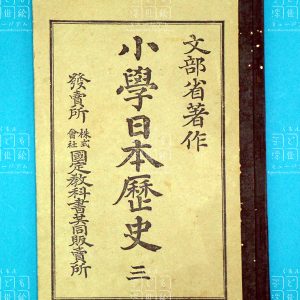 文部省著作
小學日本歷史 三
發賣所 株式會社 國定教科書共同販賣所